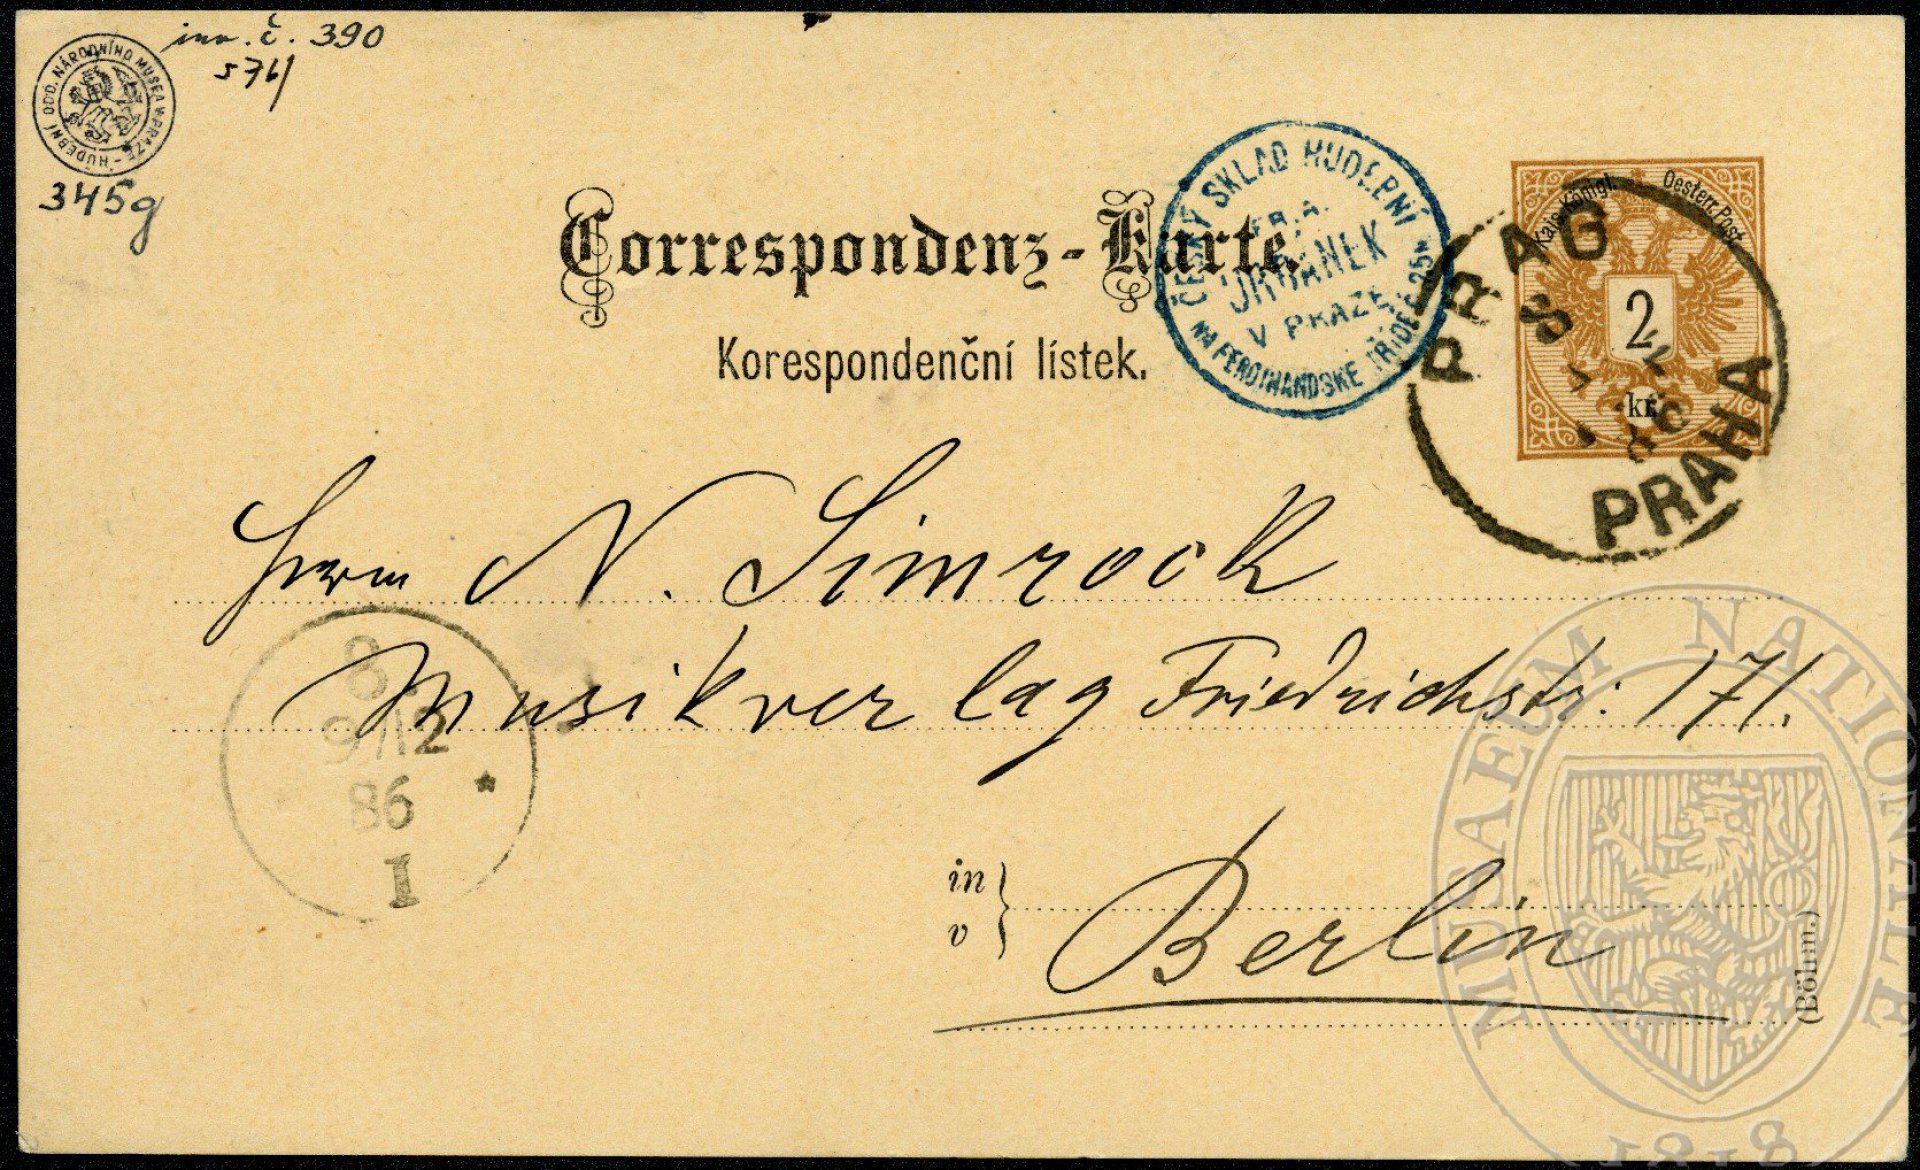 inv. č. 390
s 76/
HUDEBNÍ ODD. NÁRODNÍHO MUSEA V PRAZE -
345g
Correspondenz-Karte.
Korespondenční lístek.
ČESKÝ SKLAD HUDEBNÍ
FR. A.
URBÁNEK
V PRAZE
NA FERDINANDSKÉ TŘÍDĚ Č. 25
Kais. Königl. Oesterr. Post
2
kr.
PRAG
8
12
86
PRAHA
Herrn N. Simrock
Musikverlag Friedrichstr: 171.
8.
9/12
86
1
*
in
v
Berlin
(Böhm.)
MUSAEUM NATIONALE
1818